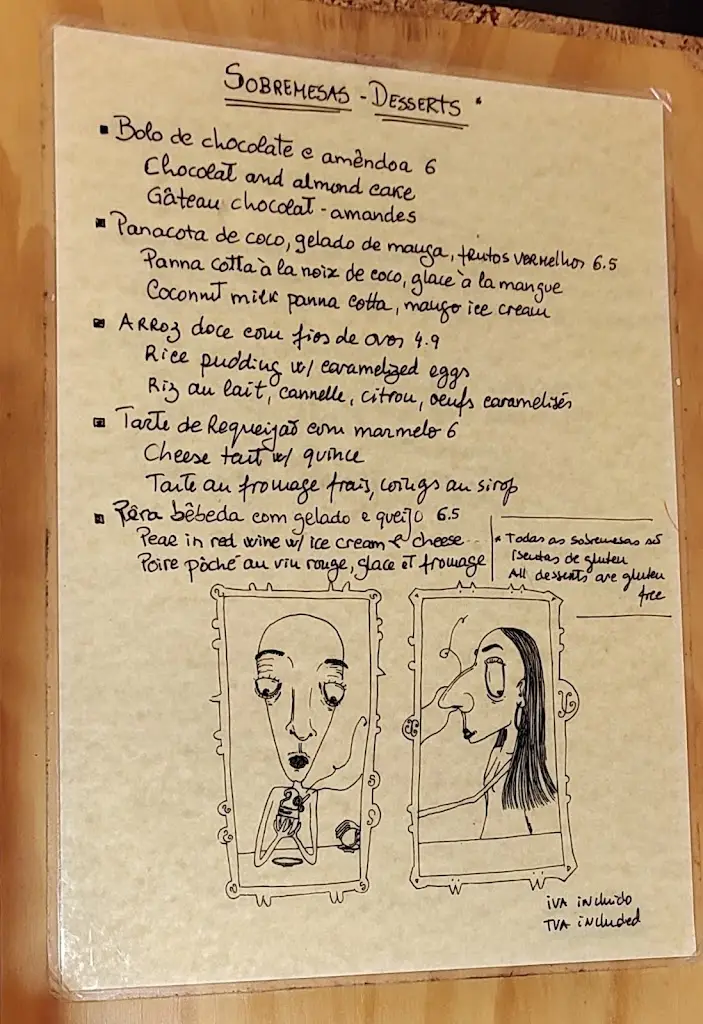 SOBREMESAS - DESSERTS *
Bolo de chocolate e amêndoa 6
Chocolat and almond cake
Gâteau chocolat - amandes
Panacota de coco, gelado de manga, frutos vermelhos 6.5
Panna cotta à la noix de coco, glace à la mangue
Coconut milk panna cotta, mango ice cream
Arroz doce com fios de ovos 4.9
Rice pudding w/ caramelized eggs
Riz au lait, cannelle, citron, oeufs caramelisés
Tarte de Requeijão com marmelo 6
Cheese tart w/ quince
Tarte au fromage frais, coings au sirop
Pêra bêbeda com gelado e queijo 6.5
Pear in red wine w/ ice cream & cheese
Poire pôché au vin rouge, glace et fromage
* Todas as sobremesas são
isentas de gluten
All desserts are gluten
free
IVA incluido
TVA included